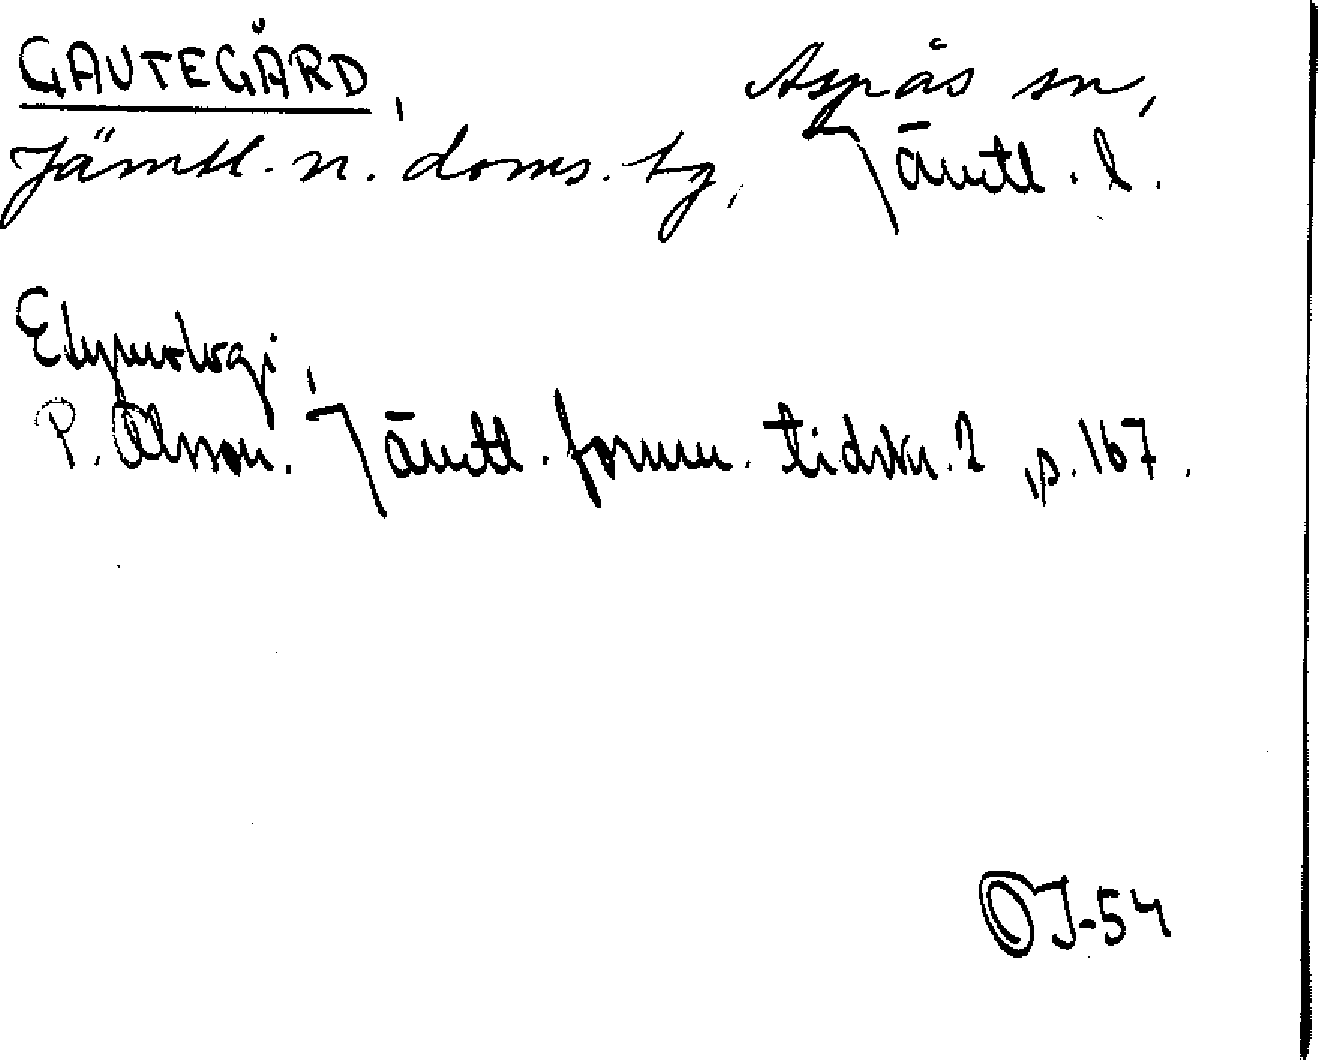 GAUTEGÅRD, Aspås sn,
Jämtl. n. doms. tg, Jämtl. l.
Etymologi,
P. Olsson. Jämtl. fornm. tidskr. 2, p. 167.
OJ-54